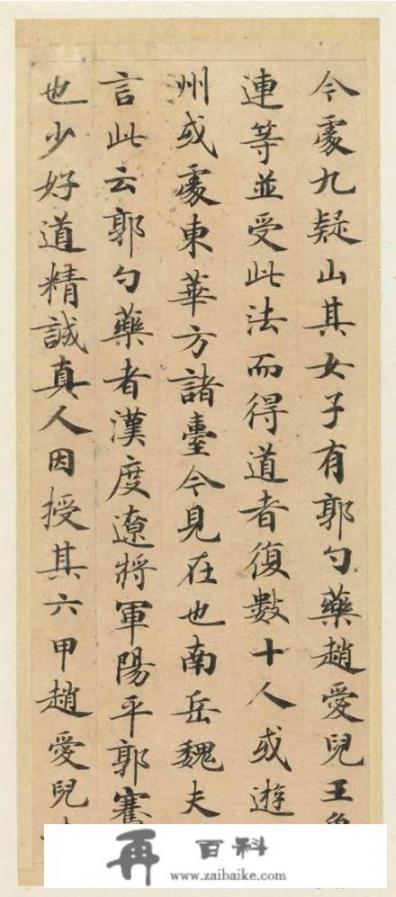 今處九疑山其女子有郭勺藥趙愛兒王魯
連等並受此法而得道者復數十人或遊
州或處東華方諸臺今見在也南岳魏夫
言此云郭勺藥者漢度遼將軍陽平郭騫
也少好道精誠真人因授其六甲趙愛兒
再百科
www.zaibaike.com